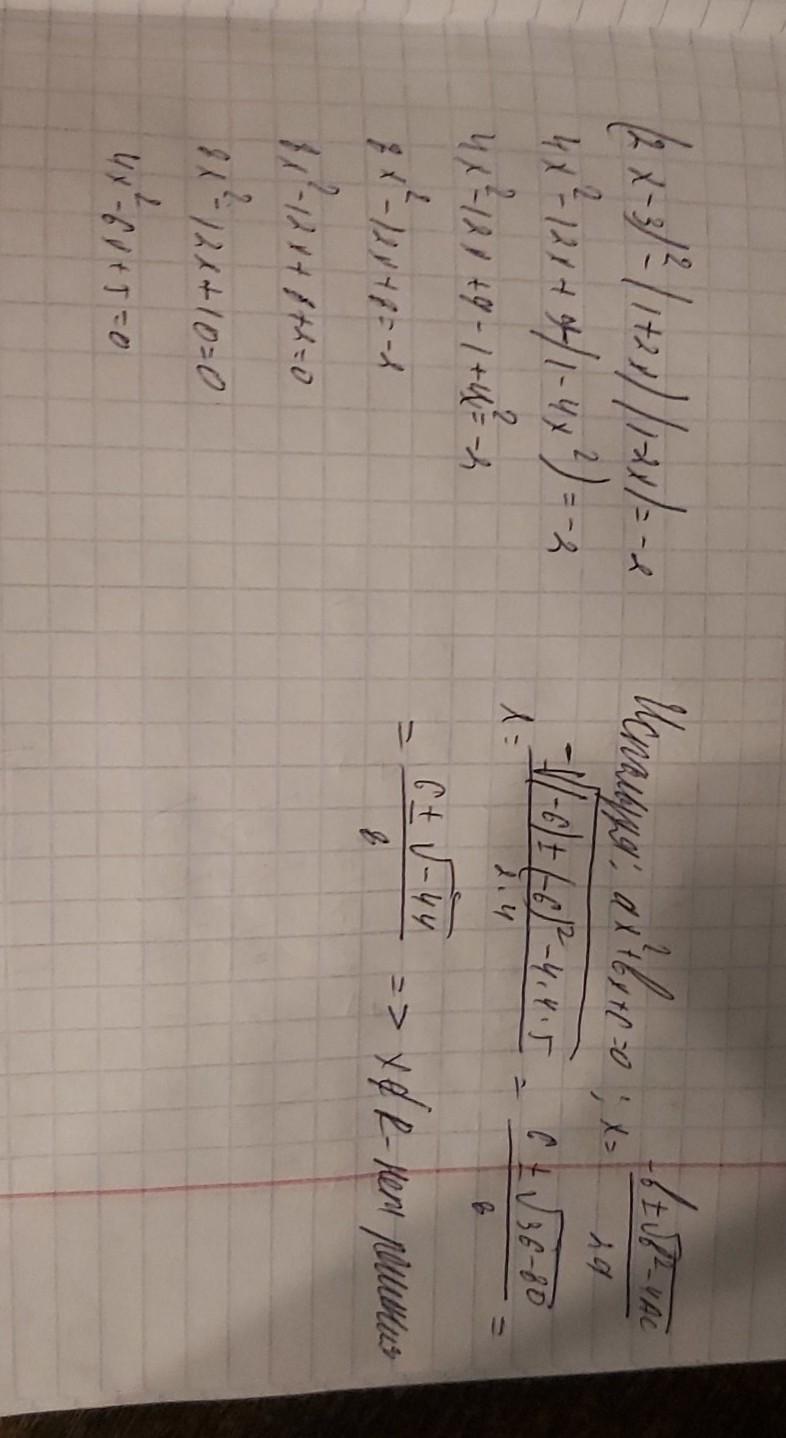 (2x-3)²-(1+2x)(1-2x)=-2
4x²-12x+9-(1-4x²)=-2
4x²-12x+9-1+4x²=-2
8x²-12x+8=-2
8x²-12x+8+2=0
8x²-12x+10=0
4x²-6x+5=0
Используя: ax²+bx+c=0; x= -b±√b²-4ac / 2a
x= -(-6)±√(-6)²-4·4·5 / 2·4 = 6±√36-80 / 8 =
= 6±√-44 / 8 => x∉R - нет решения